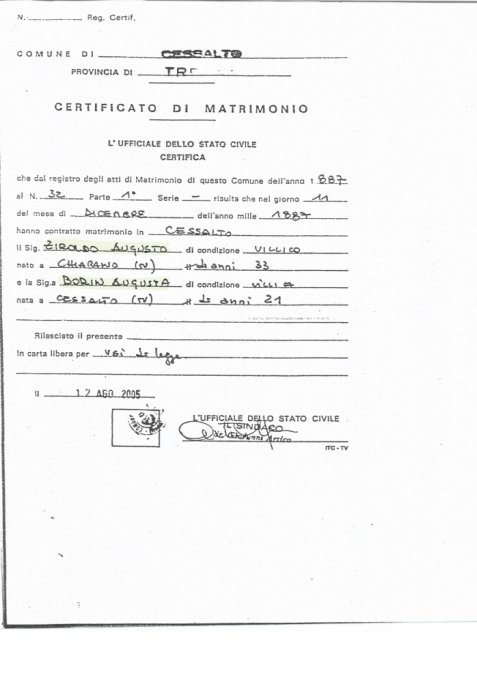 N. Reg. Certif.
COMUNE DI CESSALTO
PROVINCIA DI
CERTIFICATO DI MATRIMONIO
L'UFFICIALE DELLO STATO CIVILE
CERTIFICA
che dal registro degli atti di Matrimonio di questo Comune dell'anno 1 887
al N. 32 Parte 1ª Serie — risulta che nel giorno 11
del mese di DICEMBRE dell'anno mille 1887
hanno contratto matrimonio in CESSALTO
il Sig. ZIROLDO AUGUSTO di condizione VILLICO
nato a CHIARANO (TV) # di anni 33
e la Sig.a BORIN AUGUSTA di condizione VILLICA
nata a CESSALTO (TV) # di anni 21
Rilasciato il presente
in carta libera per usi di legge
lì 12 AGO 2005
L'UFFICIALE DELLO STATO CIVILE
IL SINDACO
ITC - TV